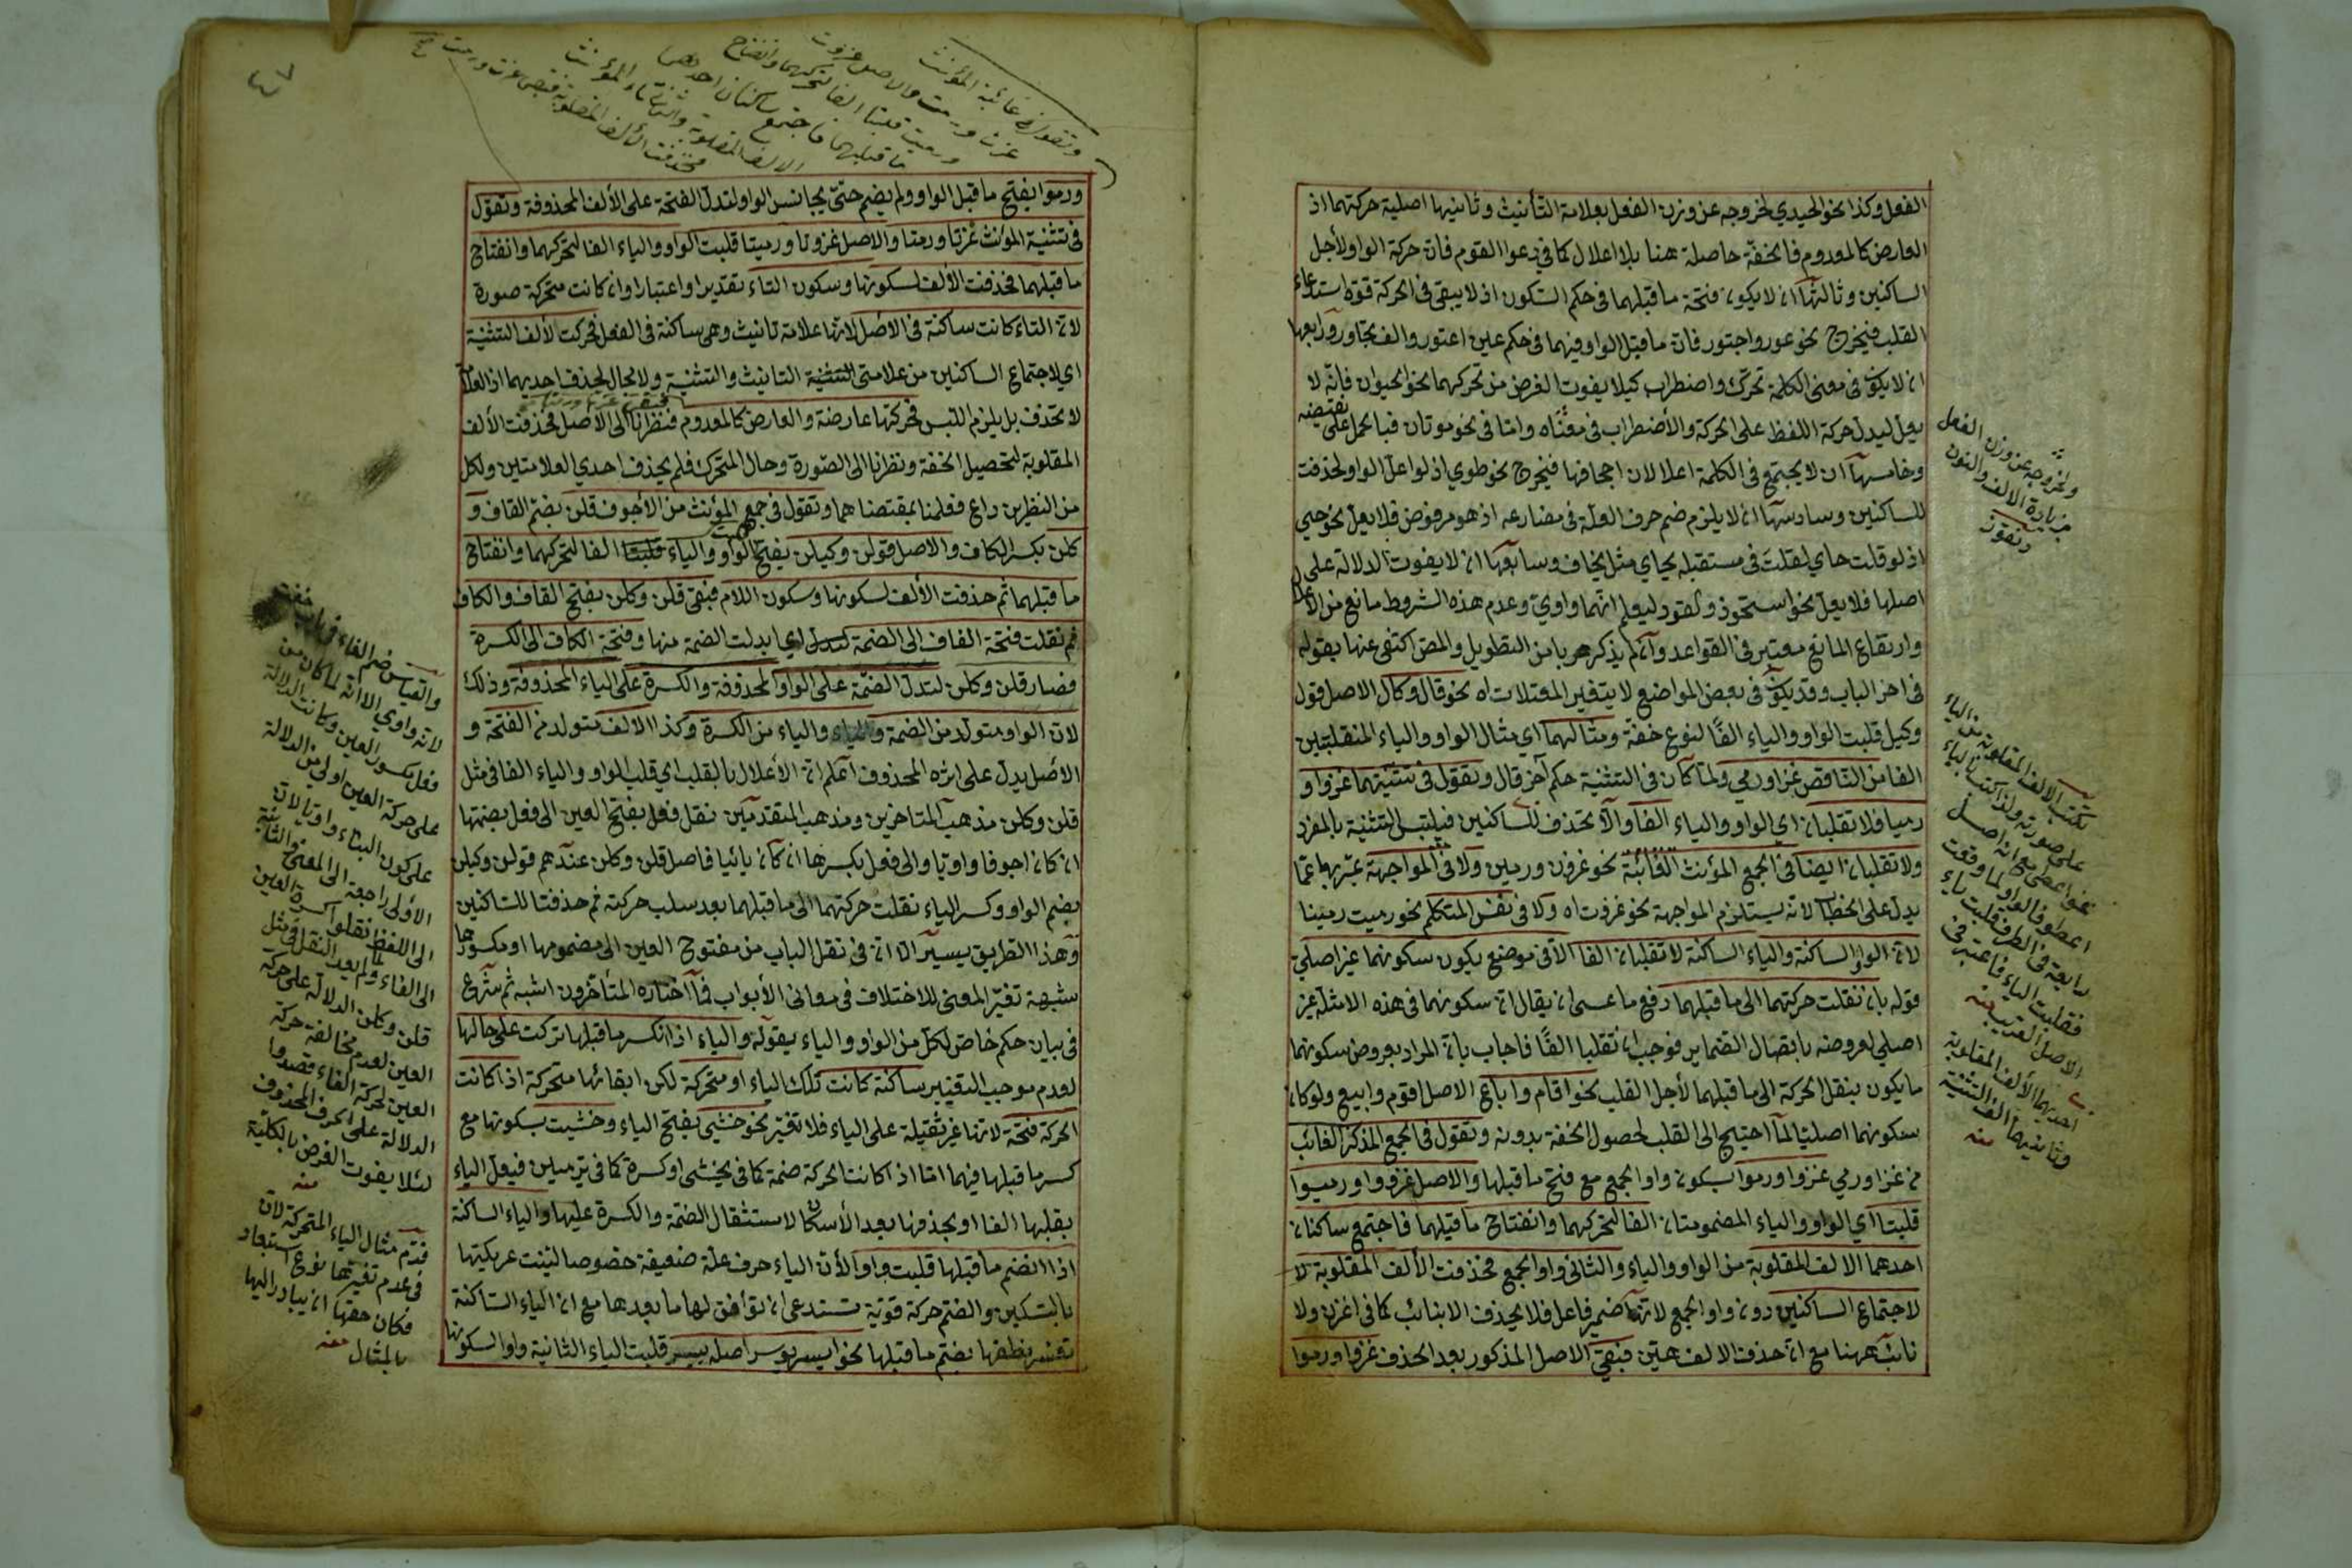 الفعل وكذا نحو الحيدي لخروجه عن وزن الفعل بعلامة التأنيث وثانيها اصلية حركتهما اذ
العارض كالمعدوم فالخفة حاصلة هنا بلا اعلال كما في دعوا القوم فان حركة الواو لأجل
الساكنين وثالثها ان لا يكون فتحة ما قبلهما في حكم السكون اذ لا يبقى في الحركة قوة استدعاء
القلب فيخرج نحو عور واجتور فان ما قبل الواو فيهما في حكم عين اعتور والف تجاور ورابعها
ان لا يكون في معنى الكلمة تحرك واضطراب كيلا يفوت الغرض من تحركهما نحو الحيوان فانه لا
يعل ليدل حركة اللفظ على الحركة والأضطراب في معناه واما في نحو موتان فبالحمل على نقيضه
وخامسها ان لا يجتمع في الكلمة اعلالان اجحافها فيخرج نحو طوي اذ لو اعل الواو لحذفت
للساكنين وسادسها ان لا يلزم ضم حرف العلة في مضارعه اذ هو مرفوض فلا يعل نحو حيي
اذ لو قلت حاي لقلت في مستقبله يحاي مثل يخاف وسابعها ان لا يفوت الدلالة على
اصلها فلا يعل نحو استحوذ والقود ليعلم انهما واوي وعدم هذه الشروط مانع من الأعلال
وارتفاع المانع معتبر في القواعد وان لم يذكر هربا من التطويل والمص اكتفى عنها بقوله
في اخر الباب وقد يكون في بعض المواضع لا يتغير المعتلات اه نحو قال وكال الاصل قول
وكيل قلبت الواو والياء الفا لنوع خفة ومثالهما اي مثال الواو والياء المنقلبتين
الفا من الناقص غزا ورمي ولما كان في التثنية حكم آخر قال وتقول في تثنيتهما غزوا و
رميا فلا تقلبان اي الواو والياء الفا والا تحذف للساكنين فيلتبس التثنية بالمفرد
ولا تقلبان ايضا في الجمع المؤنث الغائبة نحو غزون ورمين ولا في المواجهة عبر بها عما
يدل على الخطاب لانه يستلزم المواجهة نحو غزوت اه ولا في نفس المتكلم نحو رميت رمينا
لان الواو الساكنة والياء الساكنة لا تقلبان الفا الا في موضع يكون سكونهما غير اصلي
قوله بان نقلت حركتهما الى ما قبلهما دفع ما عسى ان يقال ان سكونهما في هذه الامثلة غير
اصلي لعروضه باتصال الضماير فوجب ان تقلبا الفا فاجاب بان المراد بعروض سكونهما
ما يكون بنقل الحركة الى ما قبلهما لأجل القلب نحو اقام واباع الاصل اقوم وابيع ولو كان
سكونهما اصليا لما احتيج الى القلب لحصول الخفة بدونه وتقول في الجمع المذكر الغائب
من غزا ورمي غزوا ورموا بسكون واو الجمع مع فتح ما قبلها والاصل غزووا ورميوا
قلبتا اي الواو والياء المضمومتان الفا لتحركهما وانفتاح ما قبلهما فاجتمع ساكنان
احدهما الالف المقلوبة من الواو والياء والثاني واو الجمع فحذفت الألف المقلوبة لا
لاجتماع الساكنين دون واو الجمع لانها ضمير فاعل فلا يحذف الا بنائب كما في اغزن ولا
نائب ههنا مع ان حذف الالف هين فبقي الاصل المذكور بعد الحذف غزوا ورموا
ولخروجه عن وزن الفعل
بزيادة الالف والنون
تكتب الالف المقلوبة من الياء
على صورته
فقلبت الياء فاعتبر في
الاصل القريب منه
احديهما الألف المقلوبة
وثانيهما الف التثنية
منه
وتقول في غائبة المؤنث
غزت ورمت والاصل غزوت
ورميت قلبتا الفا لتحركهما وانفتاح
ما قبلهما فاجتمع ساكنان احدهما
الالف المقلوبة والثاني تاء المؤنث
فحذفت الألف المقلوبة فبقي غزت ورمت
ورموا بفتح ما قبل الواو ولم يضم حتى يجانس الواو لتدل الفتحة على الألف المحذوفة وتقول
في تثنية المؤنث غزتا ورمتا والاصل غزوتا ورميتا قلبت الواو والياء الفا لتحركهما وانفتاح
ما قبلهما فحذفت الألف لسكونها وسكون التاء تقديرا واعتبارا وان كانت متحركة صورة
لان التاء كانت ساكنة في الاصل لانها علامة تانيث وهي ساكنة في الفعل فحركت لألف التثنية
اي لاجتماع الساكنين من علامتي التثنية التانيث والتثنية ولا مجال لحذف احديهما اذ العلامة
لا تحذف بل يلزم اللبس فحركتها عارضة والعارض كالمعدوم فنظرنا الى الأصل فحذفت الألف
المقلوبة لتحصيل الخفة ونظرنا الى الصورة وحال المتحرك فلم يحذف احدي العلامتين ولكل
من النظرين داع فعلمنا بمقتضاهما وتقول في جمع المؤنث من الأجوف قلن بضم القاف و
كلن بكسر الكاف والاصل قولن وكيلن بفتح الواو والياء قلبتا الفا لتحركهما وانفتاح
ما قبلهما ثم حذفت الألف لسكونها وسكون اللام فبقى قلن وكلن بفتح القاف والكاف
ثم نقلت فتحة القاف الى الضمة اي ابدلت الضمة منها وفتحة الكاف الى الكسرة
فصار قلن وكلن لتدل الضمة على الواو المحذوفة والكسرة على الياء المحذوفة وذلك
لان الواو متولد من الضمة والياء من الكسرة وكذا الالف متولد من الفتحة و
الاصل يدل على اثره المحذوف اعلم ان الأعلال بالقلب اي قلب الواو والياء الفا في مثل
قلن وكلن مذهب المتاخرين ومذهب المتقدمين نقل فعل بفتح العين الى فعل بضمها
ان كان اجوفا واويا والى فعل بكسرها ان كان يائيا فاصل قلن وكلن عندهم قولن وكيلن
بضم الواو وكسر الياء نقلت حركتهما الى ما قبلهما بعد سلب حركته ثم حذفتا للساكنين
وهذا الطريق يسير الا ان في نقل الباب من مفتوح العين الى مضمومها او مكسورها
شبهة تغير المعنى للاختلاف في معاني الأبواب فما اختاره المتأخرون اشبه ثم شرع
في بيان حكم خاص لكل من الواو والياء بقوله والياء اذا انكسر ما قبلها تركت على حالها
لعدم موجب التغيير ساكنة كانت تلك الياء او متحركة لكن ابقائها متحركة اذا كانت
الحركة فتحة لانها غير ثقيلة على الياء فلا تغير نحو خشي بفتح الياء وخشيت بسكونها مع
كسر ما قبلها فيهما اما اذا كانت الحركة ضمة كما في يخشى او كسرة كما في ترميين فيعل الياء
بقلبها الفا او بحذفها بعد الأسكان لاستثقال الضمة والكسرة عليها والياء الساكنة
اذا انضم ما قبلها قلبت واوا لأن الياء حرف علة ضعيفة خصوصا لينت عريكتها
بالتسكين والضم حركة قوية تستدعي ان توافق لها ما بعدها مع ان الياء الساكنة
تعسر نطقها بضم ما قبلها نحو ايسر يوسر اصله ييسر قلبت الياء الثانية واوا لسكونها
والقياس ضم الفاء في باب خفت
لانه واوي الا انه لما كان من
فعل مكسور العين وكانت الدلالة
على حركة العين اولى من الدلالة
على كون البناء واويا لان
الأولى راجعة الى المعنى والثانية
الى اللفظ نقلوا كسرة العين
الى الفاء ولم يعد النقل في مثل
قلن وكلن الدلالة على حركة
العين لعدم مخالفة حركة
العين لحركة الفاء فقصدوا
الدلالة على الحرف المحذوف
لئلا يفوت الغرض بالكلية
منه
قدم مثال الياء المتحركة لان
في عدم تغيرها نوع استبعاد
فكان حقها ان يبادر اليها
بالمثال منه